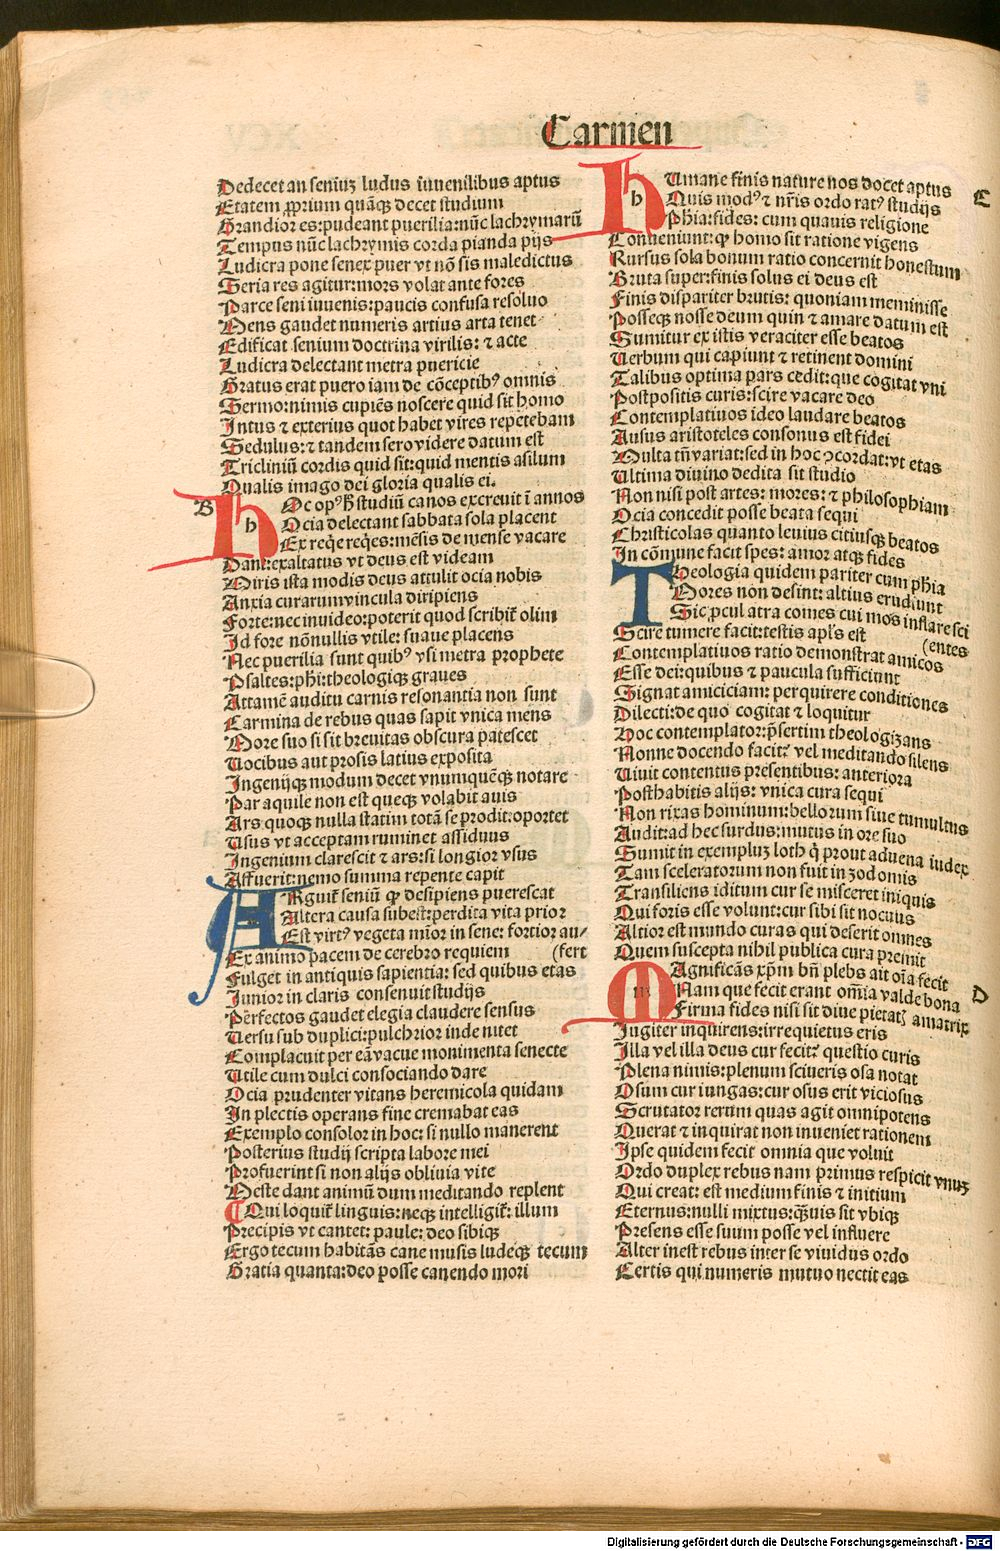 Carmen
Dedecet an seniuꝫ ludus iuuenilibus aptus
Etatem ꝓprium quãqꝫ decet studium
Grandior es:pudeant puerilia:nũc lachrymarũ
Tempus nũc lachrymis corda pianda pijs
Ludicra pone senex puer vt nõ sis maledictus
Seria res agitur:mors volat ante fores
Parce seni iuuenis:paucis confusa resoluo
Mens gaudet numeris artius arta tenet
Edificat senium doctrina virilis: ⁊ acte
Ludicra delectant metra puericie
Gratus erat puero iam de cõceptibꝰ omnis
Sermo:nimis cupiẽs noscere quid sit homo
Intus ⁊ exterius quot habet vires repetebam
Sedulus:⁊ tandem sero videre datum est
Tricliniũ cordis quid sit:quid mentis asilum
Qualis imago dei gloria qualis ei.
B
h
Oc opꝰ h̃ studiũ canos excreuit ĩ annos
Ocia delectant sabbata sola placent
Ex req̃e req̃es:mẽsis de mense vacare
Dant:exaltatus vt deus est videam
Miris ista modis deus attulit ocia nobis
Anxia curarum vincula diripiens
Forte:nec inuideo:poterit quod scribit̃ olim
Id fore nõnullis vtile: suaue placens
Nec puerilia sunt quibꝰ vsi metra prophete
Psaltes:ph̃i:theologiqꝫ graues
Attamẽ auditu carnis resonantia non sunt
Carmina de rebus quas sapit vnica mens
More suo si sit breuitas obscura patescet
Uocibus aut prosis latius exposita
Ingenijqꝫ modum decet vnumquẽqꝫ notare
Par aquile non est queqꝫ volabit auis
Ars quoqꝫ nulla statim totã se prodit:oportet
Usus vt acceptam ruminet assiduus
Ingenium clarescit ⁊ ars:si longior vsus
Affuerit:nemo summa repente capit
ARguit̃ seniũ ꝙ desipiens puerescat
Altera causa subest:perdita vita prior
Est virtꝰ vegeta mĩor in sene: fortior au/
Ex animo pacem de cerebro requiem (fert
Fulget in antiquis sapientia: sed quibus etas
Junior in claris consenuit studijs
Perfectos gaudet elegia claudere sensus
Uersu sub duplici:pulchrior inde nitet
Complacuit per eã vacue monimenta senecte
Utile cum dulci consociando dare
Ocia prudenter vitans heremicola quidam
In plectis operans fine cremabat eas
Exemplo consolor in hoc: si nullo manerent
Posterius studij scripta labore mei
Profuerint si non alijs obliuia vite
Meste dant animũ dum meditando replent
Qui loquit̃ linguis:neqꝫ intelligit̃: illum
Precipis vt cantet: paule: deo sibiqꝫ
Ergo tecum habitãs cane musis ludeqꝫ tecum
Gratia quanta:deo posse canendo mori
C
h
Umane finis nature nos docet aptus
Quis modꝰ ⁊ nr̃is ordo ratꝰ studijs
Ph̃ia:fides: cum quauis religione
Conueniunt:ꝙ homo sit ratione vigens
Rursus sola bonum ratio concernit honestum
Bruta super:finis solus ei deus est
Finis dispariter brutis: quoniam meminisse
Posseqꝫ nosse deum quin ⁊ amare datum est
Sumitur ex istis veraciter esse beatos
Uerbum qui capiunt ⁊ retinent domini
Talibus optima pars cedit:que cogitat vni
Postpositis curis:scire vacare deo
Contemplatiuos ideo laudare beatos
Ausus aristoteles consonus est fidei
Multa tñ variat:sed in hoc ↄcordat:vt etas
Ultima diuino dedita sit studio
Non nisi post artes: mores: ⁊ philosophiam
Ocia concedit posse beata sequi
Christicolas quanto leuius citiusqꝫ beatos
In cõmune facit spes: amor atqꝫ fides
THeologia quidem pariter cum ph̃ia
Mores non desint: altius erudiunt
Sic ꝓcul atra comes cui mos inflare sci
Scire tumere facit:testis apl̃s est (entes
Contemplatiuos ratio demonstrat amicos
Esse dei:quibus ⁊ paucula sufficiunt
Signat amiciciam: perquirere conditiones
Dilecti:de quo cogitat ⁊ loquitur
Hoc contemplator:p̃sertim theologizans
Nonne docendo facit? vel meditando silens
Uiuit contentus presentibus: anteriora
Posthabitis alijs: vnica cura sequi
Non rixas hominum:bellorum siue tumultus
Audit:ad hec surdus:mutus in ore suo
Sumit in exempluꝫ loth q̃ prout aduena iudex
Tam sceleratorum non fuit in zodomis
Transiliens iditum cur se misceret iniquis
Qui foris esse volunt:cur sibi sit nocuus
Altior est mundo curas qui deserit omnes
Quem suscepta nihil publica cura premit
D
m
Agnificãs xp̃m bñ plebs ait oĩa fecit
Nam que fecit erant om̃ia valde bona
Firma fides nisi sit diue pietatꝫ amatrix
Jugiter inquirens:irrequietus eris
Illa vel illa deus cur fecit? questio curis
Plena nimis:plenum scrueris osa notat
Osum cur iungas:cur osus erit viciosus
Scrutator rerum quas agit omnipotens
Querat ⁊ inquirat non inueniet rationem
Ipse quidem fecit omnia que voluit
Ordo duplex rebus nam primus respicit vnuꝫ
Qui creat: est medium finis ⁊ initium
Eternus:nulli mixtus:q̃uis sit vbiqꝫ
Presens esse suum posse vel influere
Alter inest rebus inter se viuidus ordo
Certis qui numeris mutuo nectit eas
Digitalisierung gefördert durch die Deutsche Forschungsgemeinschaft - DFG